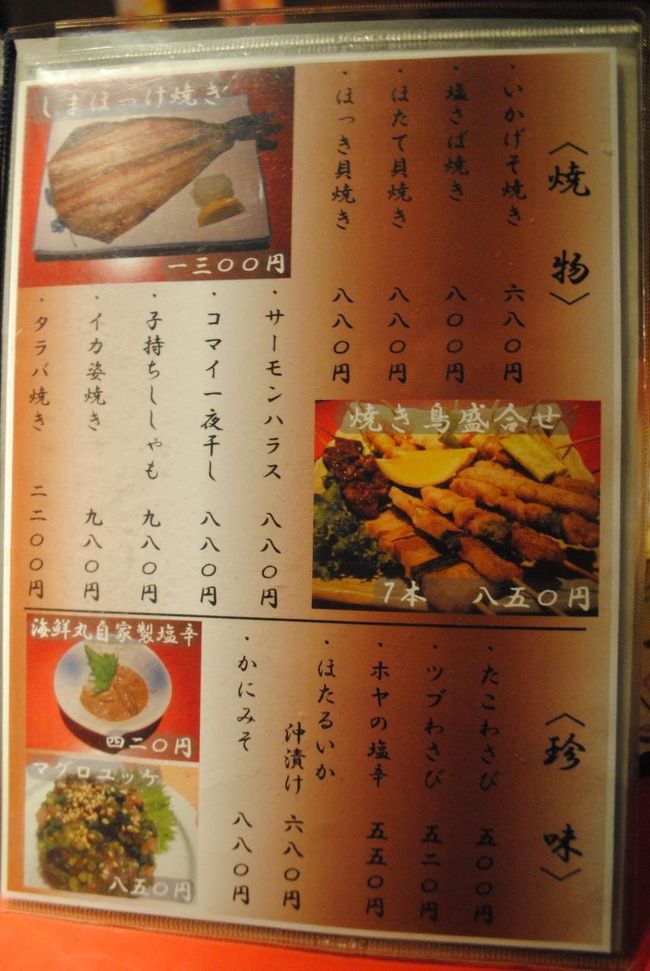 〈焼物〉
・いかげそ焼き 六八〇円
・塩さば焼き 八〇〇円
・ほたて貝焼き 八八〇円
・ほっき貝焼き 八八〇円
しまほっけ焼き
一三〇〇円
・サーモンハラス 八八〇円
・コマイ一夜干し 八八〇円
・子持ちししゃも 九八〇円
・イカ姿焼き 九八〇円
・タラバ焼き 二二〇〇円
焼き鳥盛合せ
7本 八五〇円
〈珍味〉
・たこわさび 五〇〇円
・ツブわさび 五二〇円
・ホヤの塩辛 五五〇円
・ほたるいか
沖漬け 六八〇円
・かにみそ 八八〇円
海鮮丸自家製塩辛
四二〇円
マグロユッケ
八五〇円